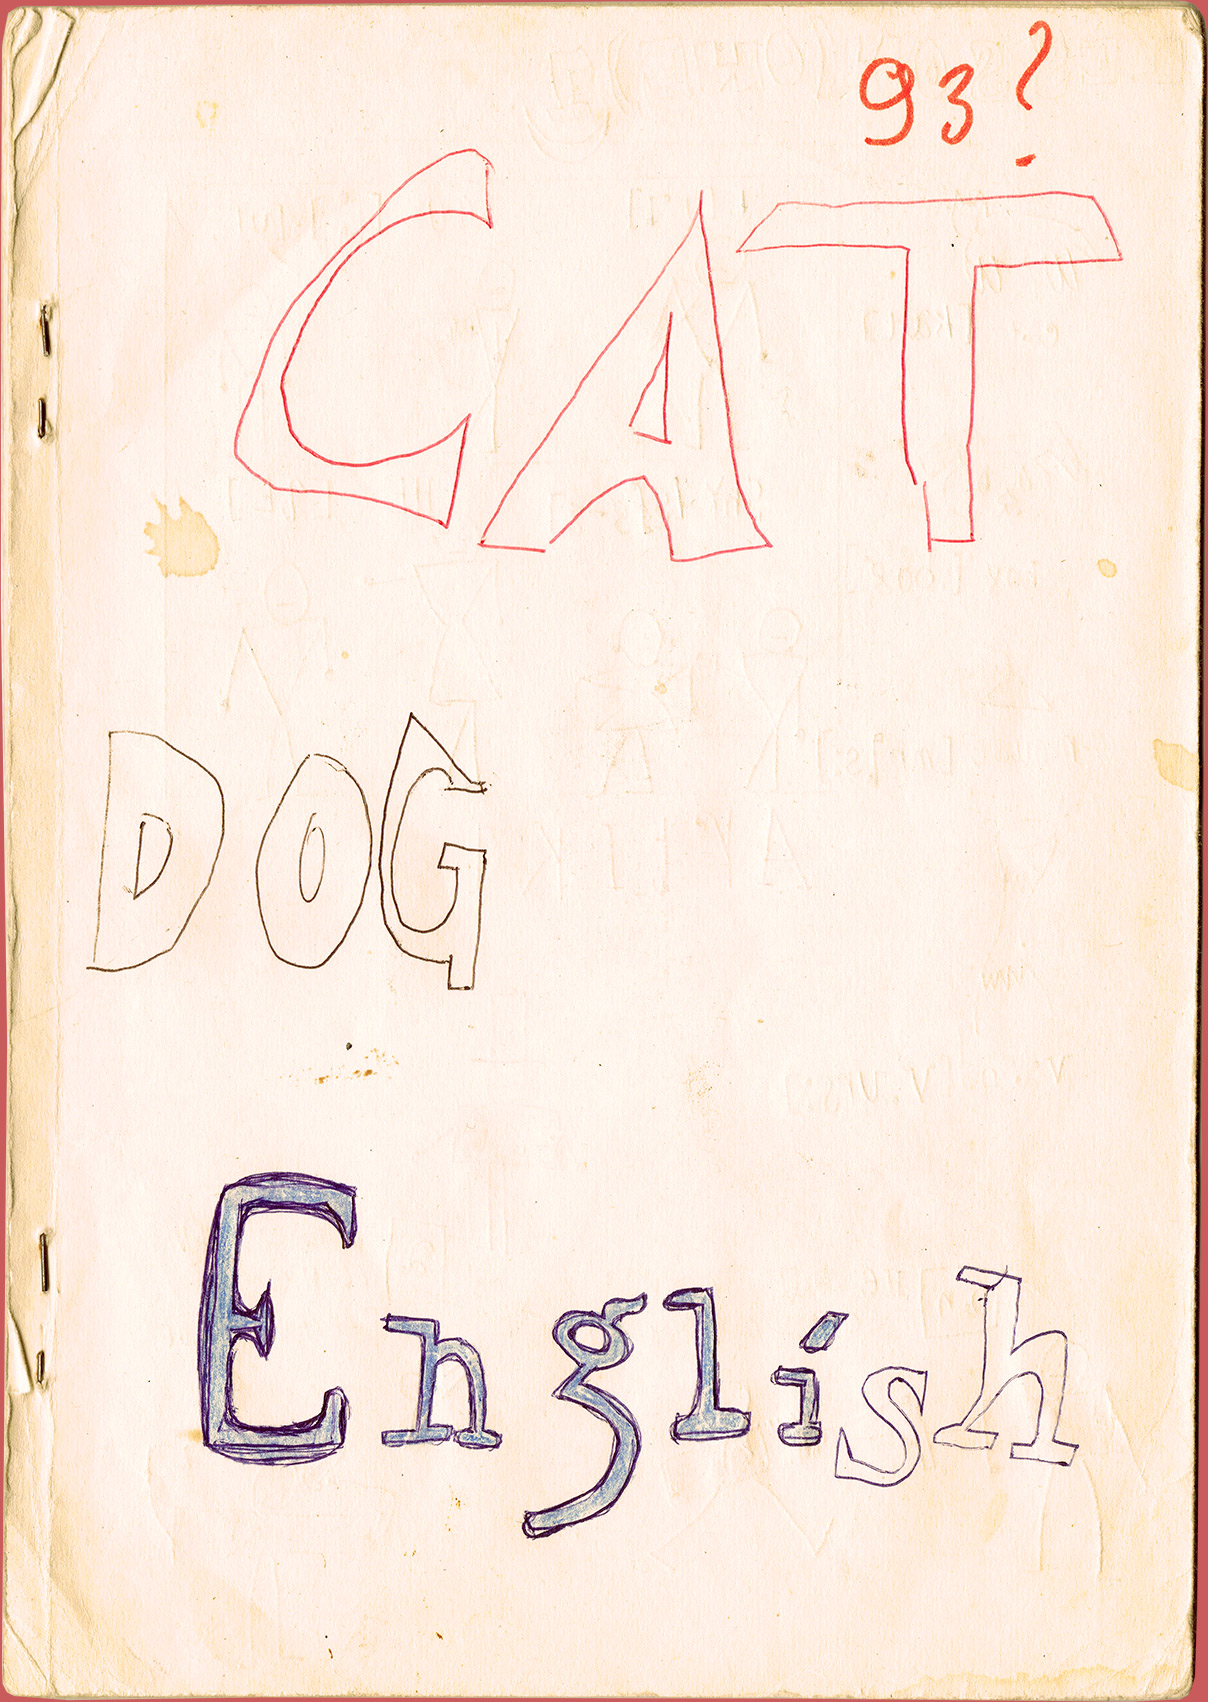 93?
CAT
DOG
English